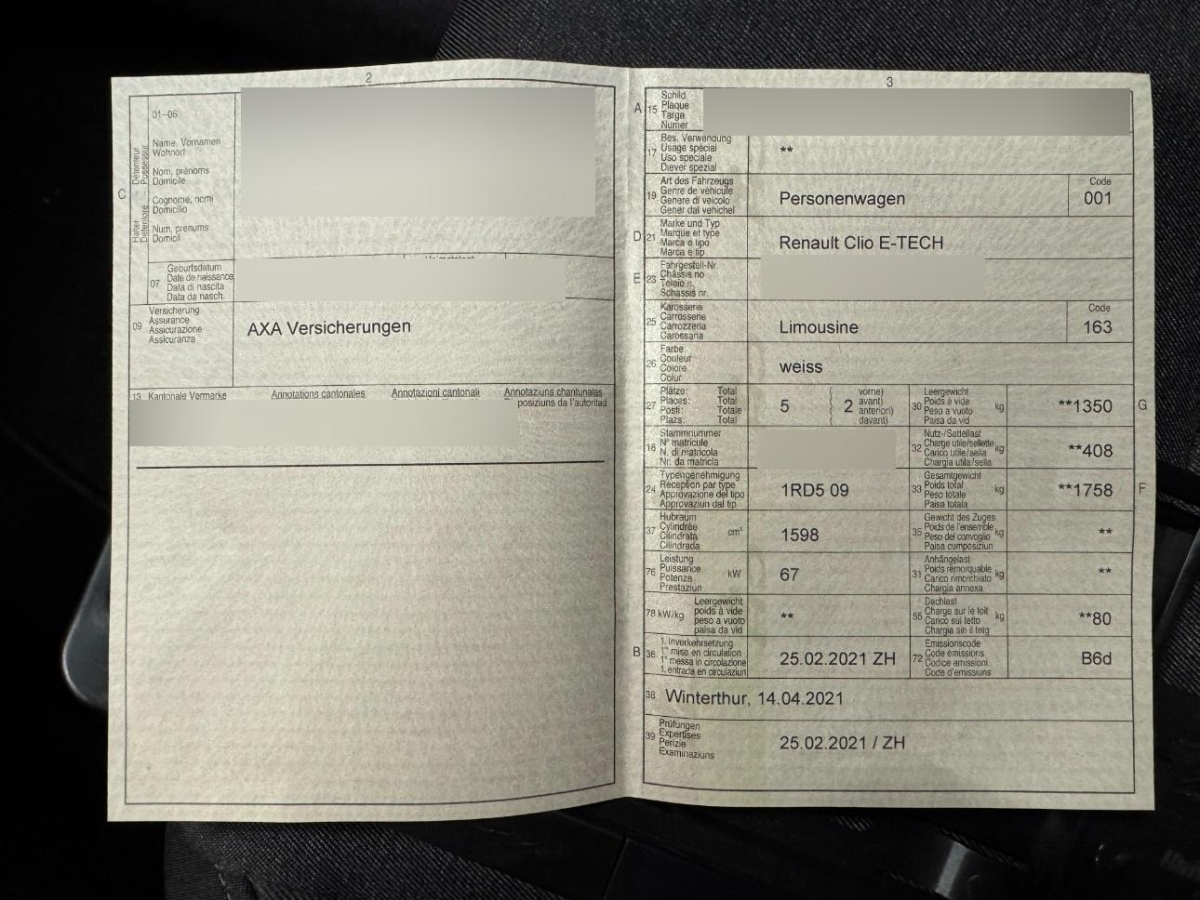 2
01-06
Halter Détenteur
Detentore Possessur
Name, Vornamen
Wohnort
Nom, prénoms
Domicile
Cognome, nomi
Domicilio
Num, prenums
Domicil
C
07
Geburtsdatum
Date de naissance
Data di nascita
Data da nasch.
09
Versicherung
Assurance
Assicurazione
Assicuranza
AXA Versicherungen
13 Kantonale Vermerke Annotations cantonales Annotazioni cantonali Annotaziuns chantunalas
posiziuns da l'autoritad
3
A 15
Schild
Plaque
Targa
Numer
17
Bes. Verwendung
Usage spécial
Uso speciale
Diever spezial
**
19
Art des Fahrzeugs
Genre de véhicule
Genere di veicolo
Gener dal vehichel
Personenwagen
Code
001
D 21
Marke und Typ
Marque et type
Marca e tipo
Marca e tip
Renault Clio E-TECH
E 23
Fahrgestell-Nr
Châssis no
Telaio n.
Schassis nr.
25
Karosserie
Carrosserie
Carrozzeria
Carossaria
Limousine
Code
163
26
Farbe
Couleur
Colore
Colur
weiss
27
Plätze: Total
Places: Total
Posti: Totale
Plazs: Total
5
2
vorne)
avant)
anteriori)
davant)
30
Leergewicht
Poids à vide
Peso a vuoto
Paisa da vid
kg
**1350
G
18
Stammnummer
N° matricule
N. di matricola
Nr. da matricla
32
Nutz-/Sattellast
Charge utile/sellette
Carico utile/sella
Chargia utila/sella
kg
**408
24
Typengenehmigung
Réception par type
Approvazione del tipo
Approvaziun dal tip
1RD5 09
33
Gesamtgewicht
Poids total
Peso totale
Paisa totala
kg
**1758
F
37
Hubraum
Cylindrée
Cilindrata
Cilindrada
cm³
1598
35
Gewicht des Zuges
Poids de l'ensemble
Peso del convoglio
Paisa cumposiziun
kg
**
76
Leistung
Puissance
Potenza
Prestaziun
kW
67
31
Anhängelast
Poids remorquable
Carico rimorchiato
Chargia annexa
kg
**
78 kW/kg
Leergewicht
poids à vide
peso a vuoto
paisa da vid
**
55
Dachlast
Charge sur le toit
Carico sul tetto
Chargia sin il tetg
kg
**80
B 36
1. Inverkehrsetzung
1re mise en circulation
1a messa in circolazione
1. entrada en circulaziun
25.02.2021 ZH
72
Emissionscode
Code émissions
Codice emissioni
Code d'emissiuns
B6d
38 Winterthur, 14.04.2021
39
Prüfungen
Expertises
Perizie
Examinaziuns
25.02.2021 / ZH